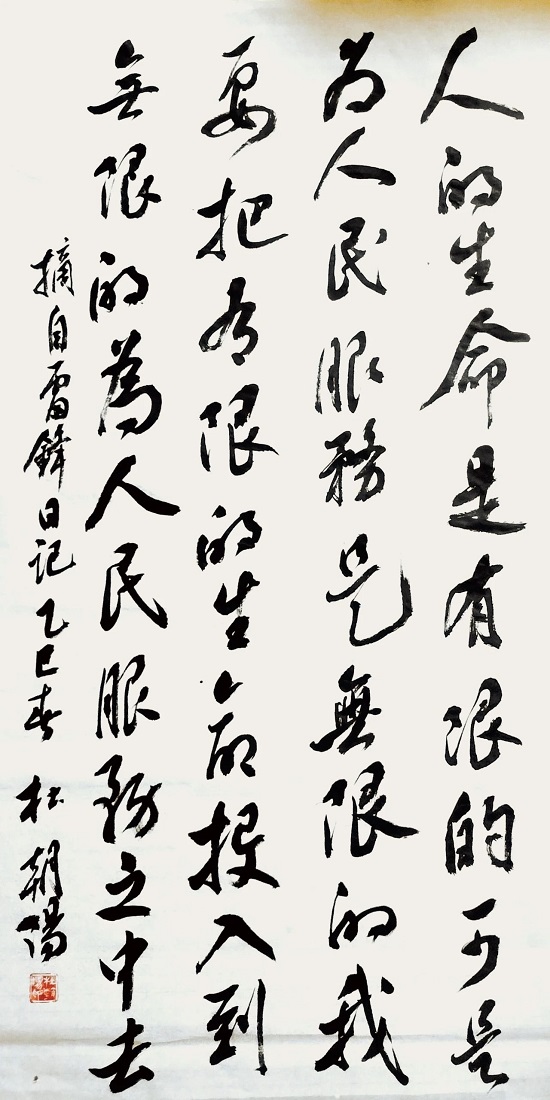 人的生命是有限的可是
为人民服務是無限的我
要把有限的生命投入到
無限的為人民服務之中去
摘自雷鋒日記乙巳春 杜朝陽